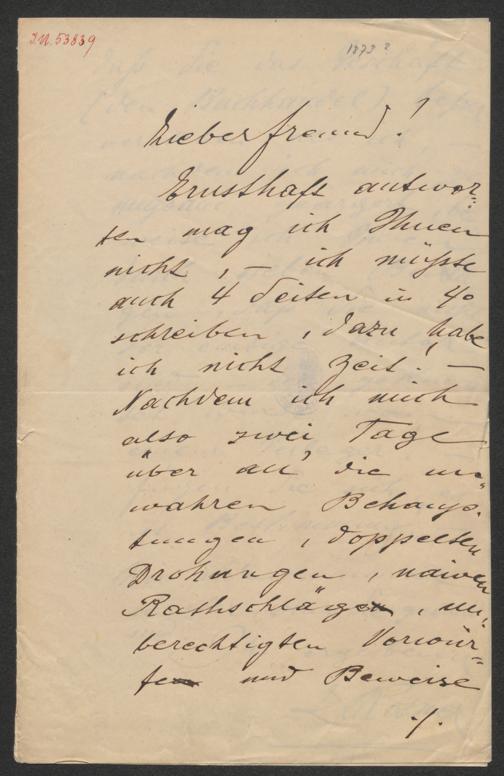 I.N. 53839
1873?
Lieber Freund!
Ernsthaft antwor-
ten mag ich Ihnen
nicht, – ich müsste
auch 4 Seiten in 4o
schreiben, dazu habe
ich nicht Zeit. –
Nachdem ich mich
also zwei Tage
über all' die un-
wahren Behaup-
tungen, doppelten
Drohungen, naiven
Rathschlägen, un-
berechtigten Vorwür-
fen und Beweise
./.